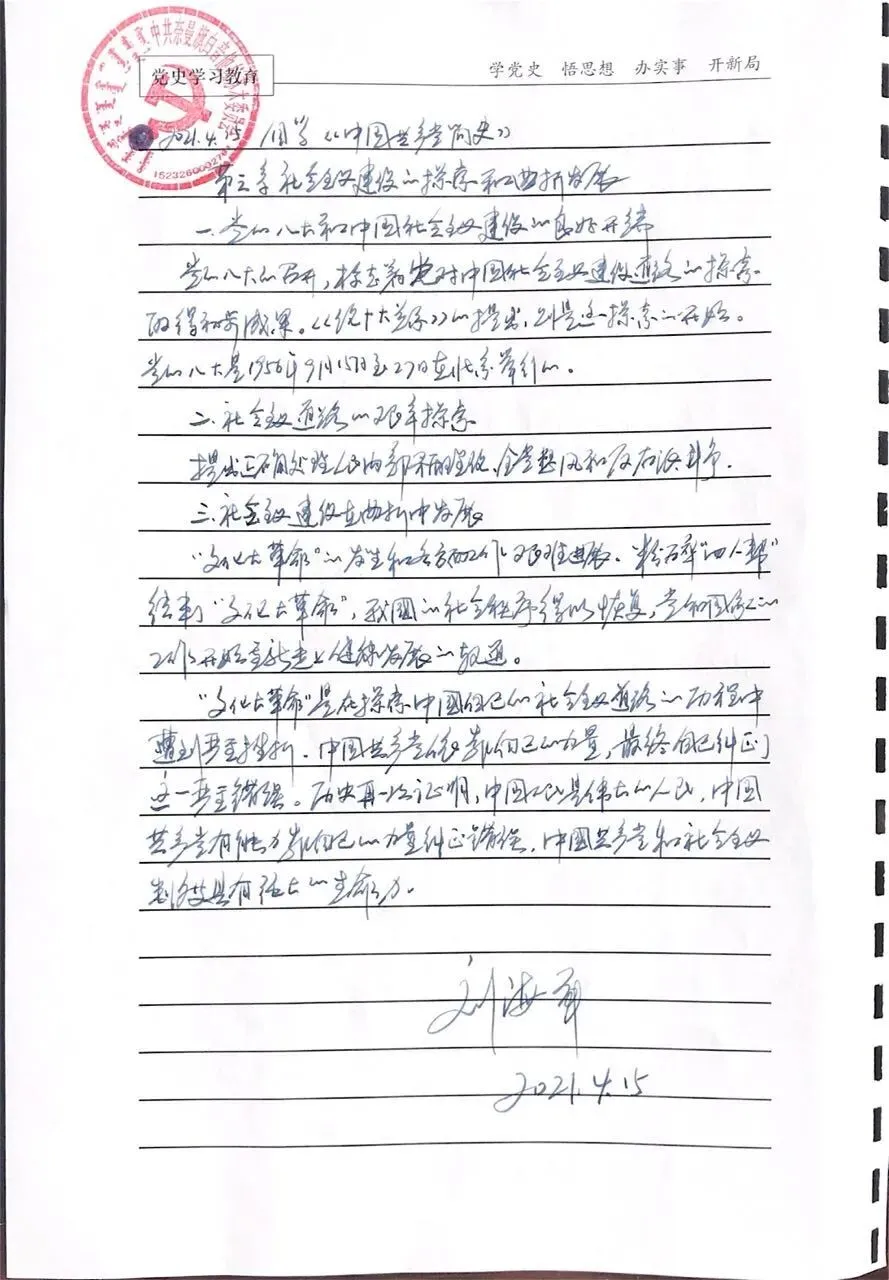 党史学习教育
学党史 悟思想 办实事 开新局
中共奈曼旗白音他拉 委员会
2021.4.15 自学《中国共产党简史》
第六章 社会主义建设的探索和曲折发展
一.党的八大和中国社会主义建设的良好开端
党的八大的召开，标志着党对中国社会主义建设道路的探索
取得初步成果。《论十大关系》的提出，则是这一探索的开始。
党的八大是1956年9月15日至27日在北京举行的。
二.社会主义道路的艰辛探索
提出正确处理人民内部矛盾理论、全党整风和反右派斗争.
三.社会主义建设在曲折中发展
“文化大革命”的发生和各方面工作艰难进展.粉碎“四人帮”
结束了“文化大革命”，我国的社会秩序得以恢复，党和国家的
工作开始重新走上健康发展的轨道。
“文化大革命”是在探索中国自己的社会主义道路的历程中
遭到严重挫折.中国共产党依靠自己的力量，最终自己纠正了
这一严重错误。历史再一次证明，中国人民是伟大的人民，中国
共产党有能力靠自己的力量纠正错误，中国共产党和社会主义
制度具有强大的生命力.
刘海军
2021.4.15